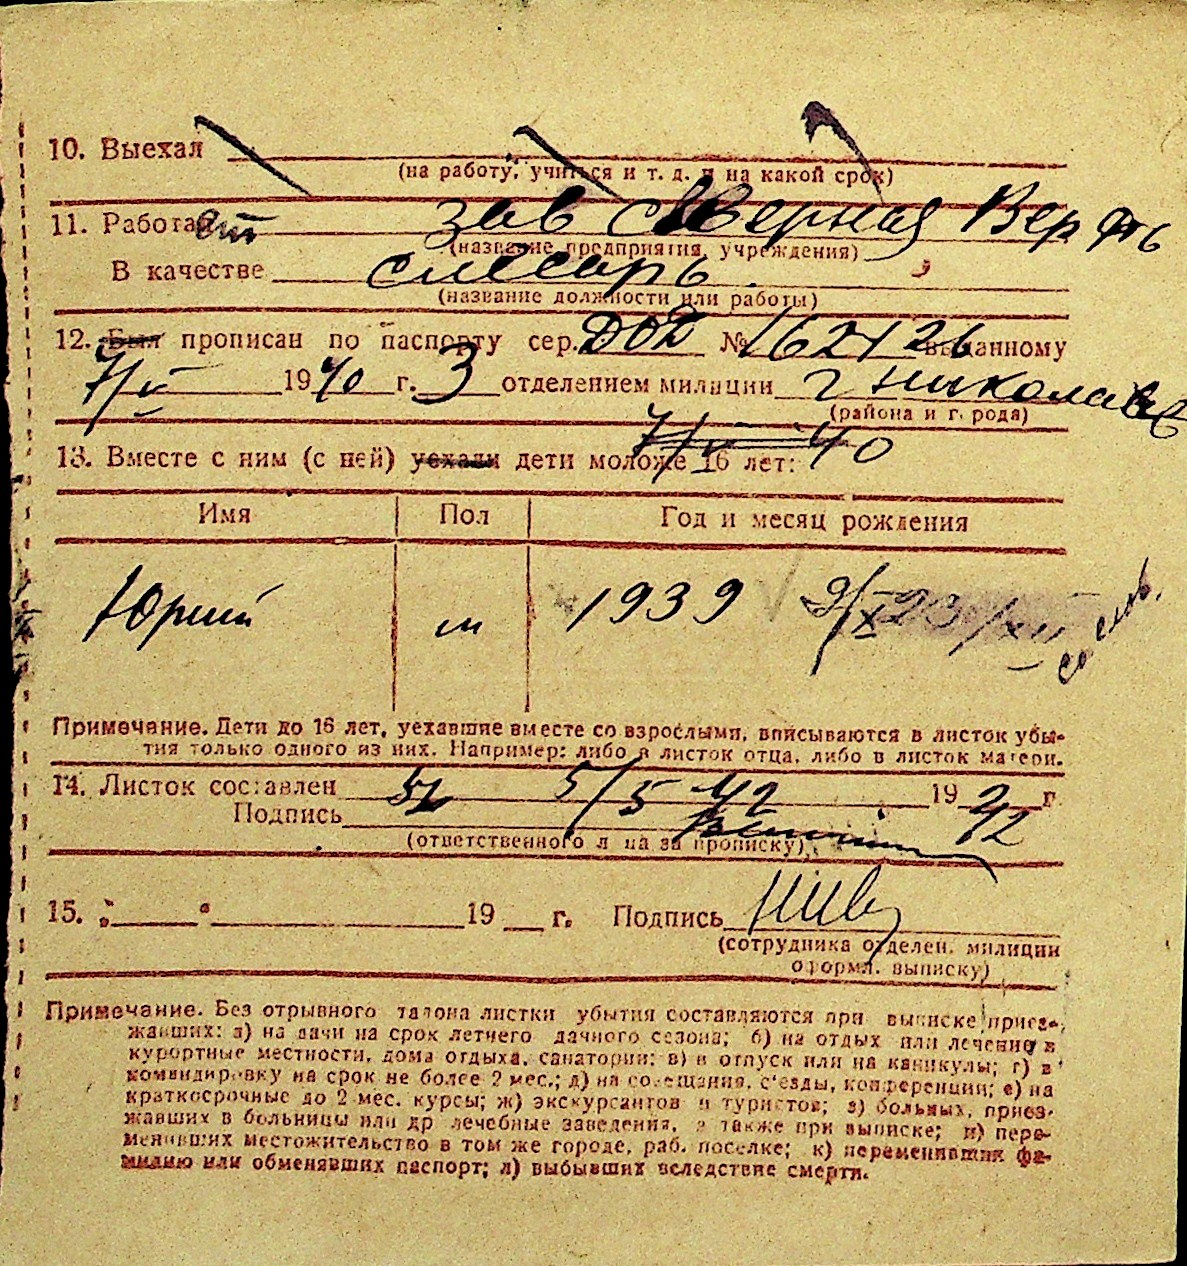 10. Выехал
(на работу, учиться и т. д. и на какой срок)
11. Работает зав северная Верфь
(название предприятия, учреждения)
В качестве слесарь
(название должности или работы)
12. Был прописан по паспорту сер. № 162126 выданному
7/V 1940 г. 3 отделением милиции г Николаев
(района и города)
7/V 40
13. Вместе с ним (с ней) уехали дети моложе 16 лет:
Имя Пол Год и месяц рождения
Юрий м 1939 9/X 23/XII со слов.
Примечание. Дети до 16 лет, уехавшие вместе со взрослыми, вписываются в листок убы-
тия только одного из них. Например: либо в листок отца, либо в листок матери.
14. Листок составлен 5/5 42 1942 г.
Подпись
(ответственного лица за прописку)
15. „ “ 19 г. Подпись
(сотрудника отделен. милиции
оформл. выписку)
Примечание. Без отрывного талона листки убытия составляются при выписке приез-
жавших: а) на дачи на срок летнего дачного сезона; б) на отдых или лечение в
курортные местности, дома отдыха, санатории; в) в отпуск или на каникулы; г) в
командировку на срок не более 2 мес.; д) на совещания, съезды, конференции; е) на
краткосрочные до 2 мес. курсы; ж) экскурсантов и туристов; з) больных, приез-
жавших в больницы или др лечебные заведения, а также при выписке; и) пере-
менивших местожительство в том же городе, раб. поселке; к) переменивших фа-
милию или обменявших паспорт; л) выбывших вследствие смерти.